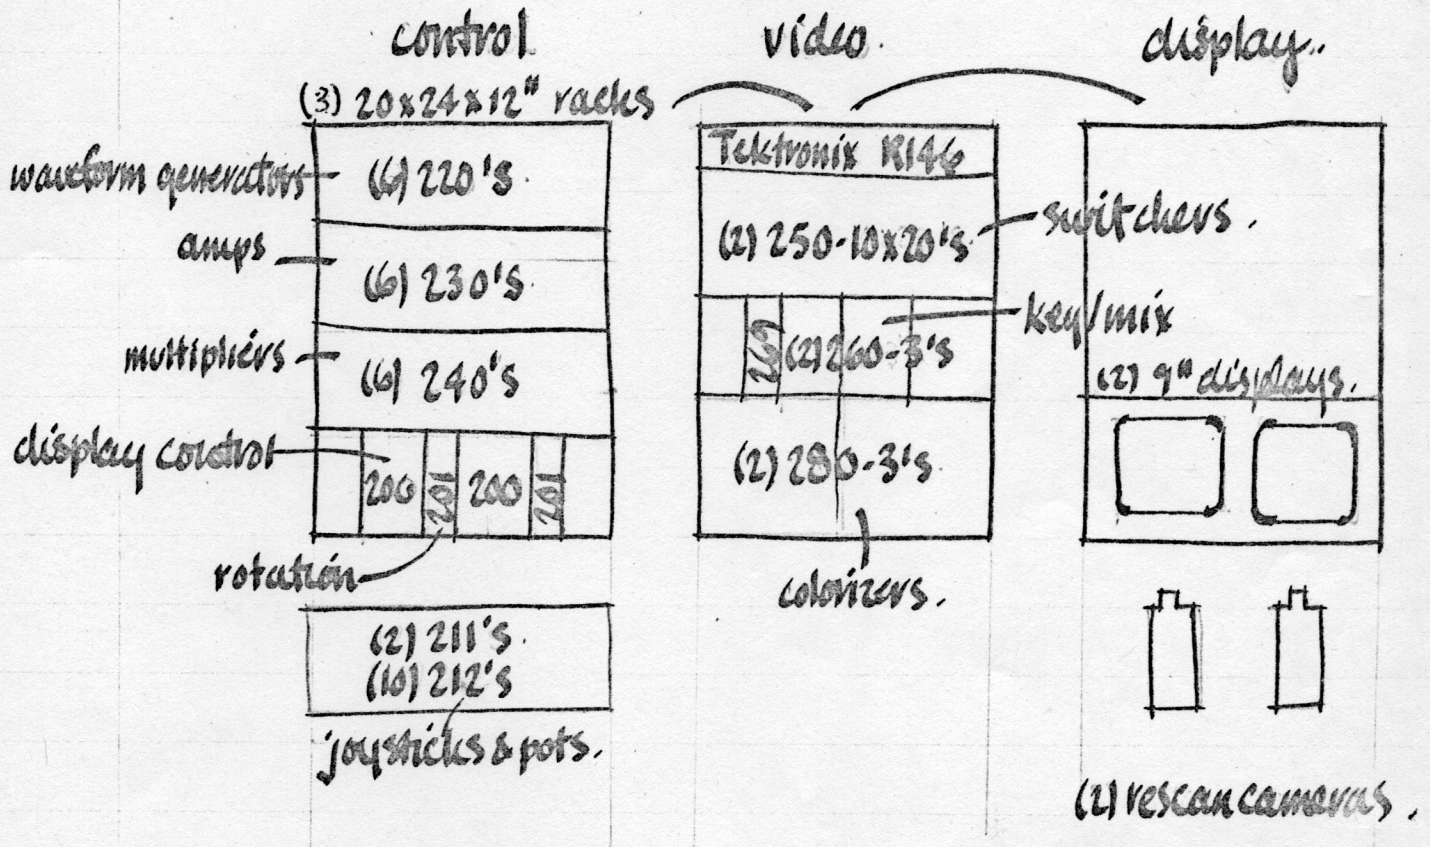 control
video.
display..
(3) 20x24x12" racks
waveform generators
(6) 220's.
amps
(6) 230's.
multipliers
(6) 240's
display control
200 201 200 201
rotation
(2) 211's.
(10) 212's
joysticks & pots.
Tektronix R146
(2) 250-10x20's.
switchers.
key/mix
(2) 260-3's
(2) 280-3's.
colorizers.
(2) 9" displays.
(2) rescan cameras.